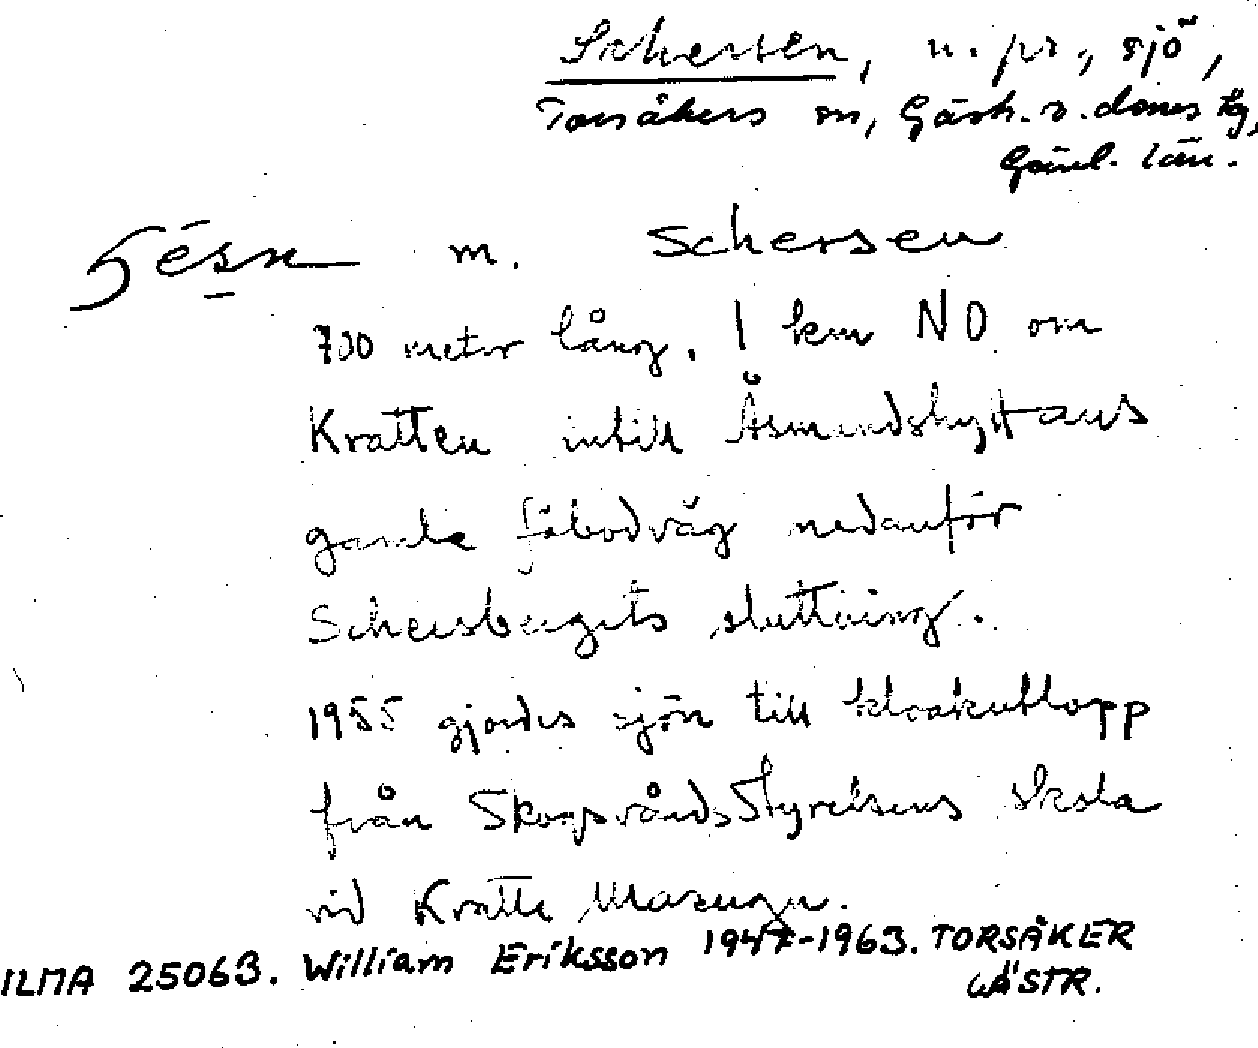 Schersen, n. pr., sjö,
Torsåkers sn, Gästr. ö. doms tg,
Gävl. län.
ʃésn m. Schersen
700 meter lång. 1 km NO om
Kratten intill Åsmundshyttans
gamla fäbodväg nedanför
Schersbergets sluttning.
1955 gjordes sjön till kloakutlopp
från Skogsvårdsstyrelsens skola
vid Kratte Masugn.
ULMA 25063. William Eriksson 1947-1963. TORSÅKER
GÄSTR.